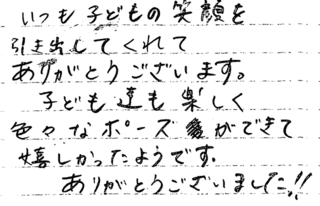 いつも子どもの笑顔を
引き出してくれて
ありがとうございます。
子ども達も楽しく
色々なポーズができて
嬉しかったようです.
ありがとうございました!!